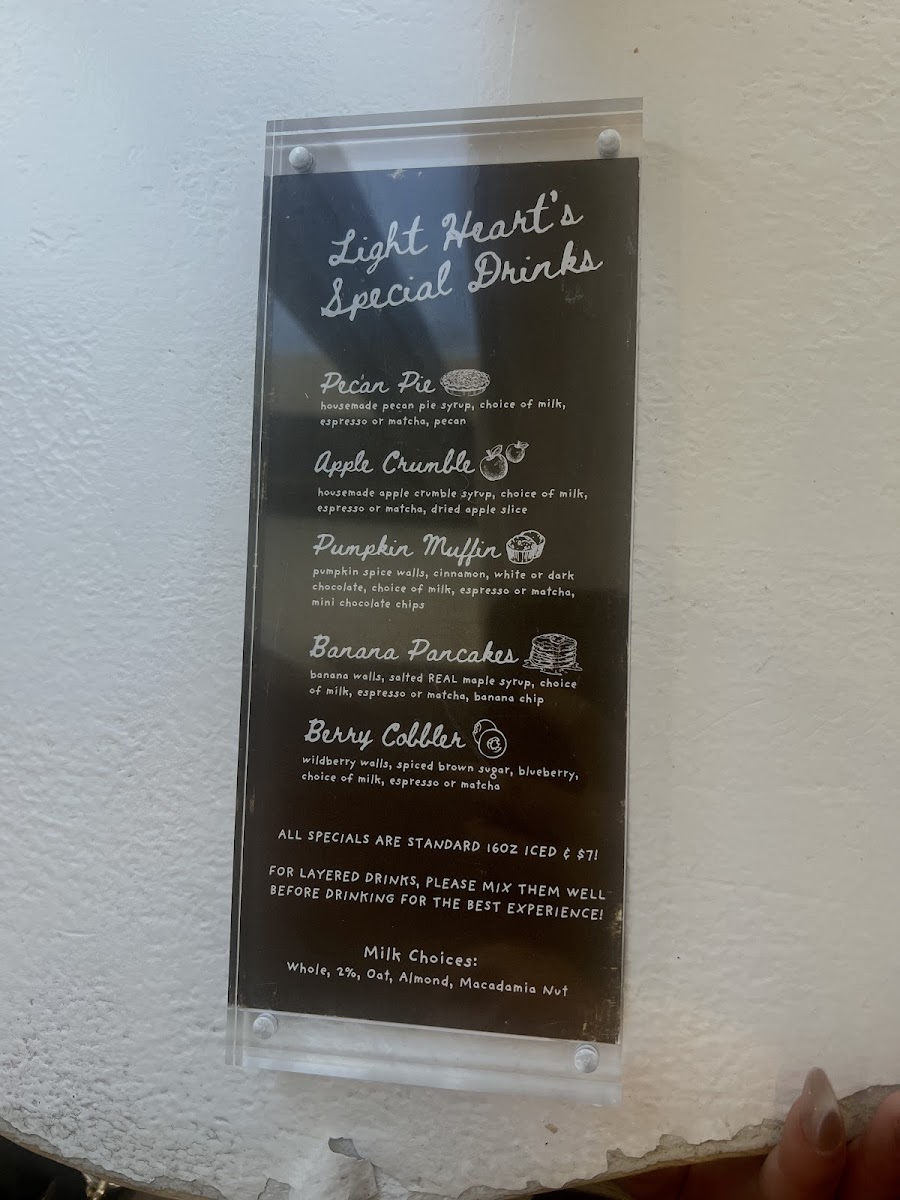 Light Heart's
Special Drinks
Pecan Pie
housemade pecan pie syrup, choice of milk,
espresso or matcha, pecan
Apple Crumble
housemade apple crumble syrup, choice of milk,
espresso or matcha, dried apple slice
Pumpkin Muffin
pumpkin spice walls, cinnamon, white or dark
chocolate, choice of milk, espresso or matcha,
mini chocolate chips
Banana Pancakes
banana walls, salted REAL maple syrup, choice
of milk, espresso or matcha, banana chip
Berry Cobbler
wildberry walls, spiced brown sugar, blueberry,
choice of milk, espresso or matcha
ALL SPECIALS ARE STANDARD 16OZ ICED & $7!
FOR LAYERED DRINKS, PLEASE MIX THEM WELL
BEFORE DRINKING FOR THE BEST EXPERIENCE!
Milk Choices:
Whole, 2%, Oat, Almond, Macadamia Nut